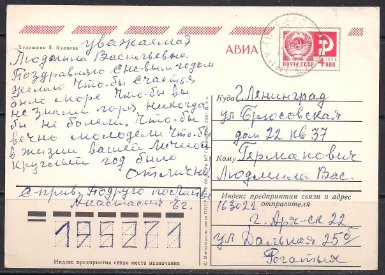 Художник Л. Кузнецов
АВИА
ПОЧТА СССР
уважаемая
Людмила Васильевна
Поздравляю с Новым годом
Желаю Что-бы счастья
было море Что-бы вы
не знали горя никогда
бы не болели. Что-бы
вечно молодели Что-бы
в жизни вашей Личной
Круглый год было
Отлично.
С прив. Подруга
Анастасия
Куда г. Ленинград
ул Брюсовская
дом 22 кв 37
Кому Германович
Людмила Вас.
Индекс предприятия связи и адрес
отправителя
163022
г. Арх-ск 22
ул Дальная 25
Богатых
195271
Индекс предприятия связи места назначения